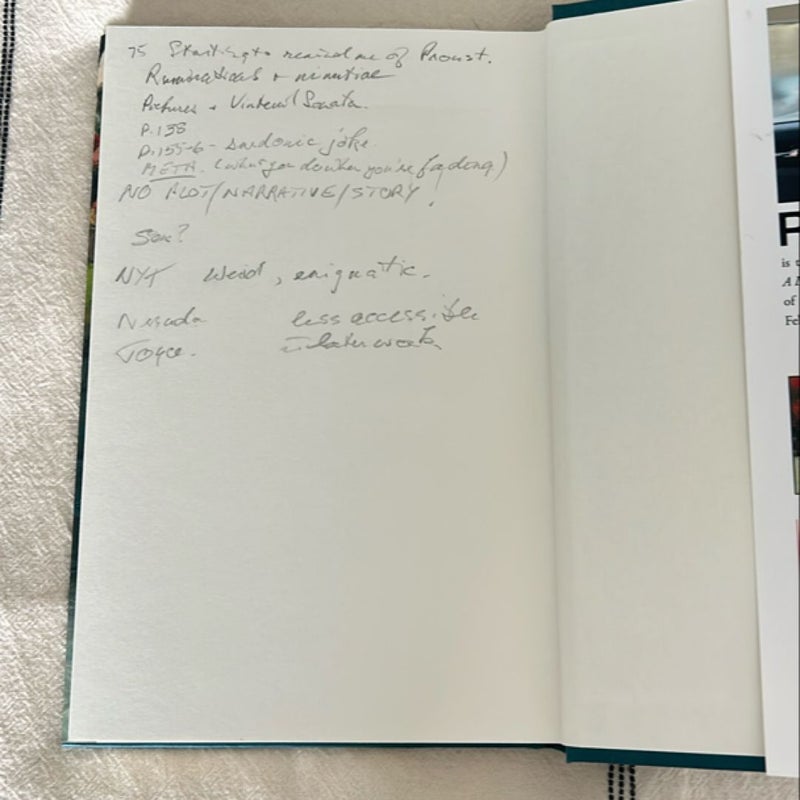 75 Starting to remind me of Proust.
Ruminations + minutiae
Pictures + Vinteuil Sonata.
P. 138
p. 155-6 - sardonic joke.
META. (what you do when you're fading)
NO PLOT/NARRATIVE/STORY.
Son?
NYT Weird, enigmatic.
Neruda less accessible
Joyce. in later work
P
is
of
Fe